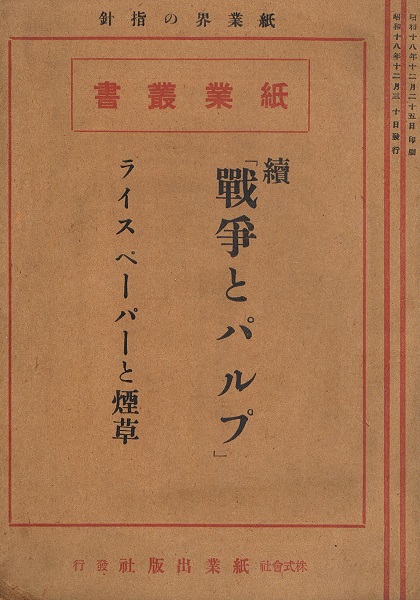 昭和十八年十二月二十五日 印刷
昭和十八年十二月三十日 發行
紙業界の指針
紙業叢書
續「戰爭とパルプ」
ライスペーパーと煙草
株式會社 紙業出版社 發行